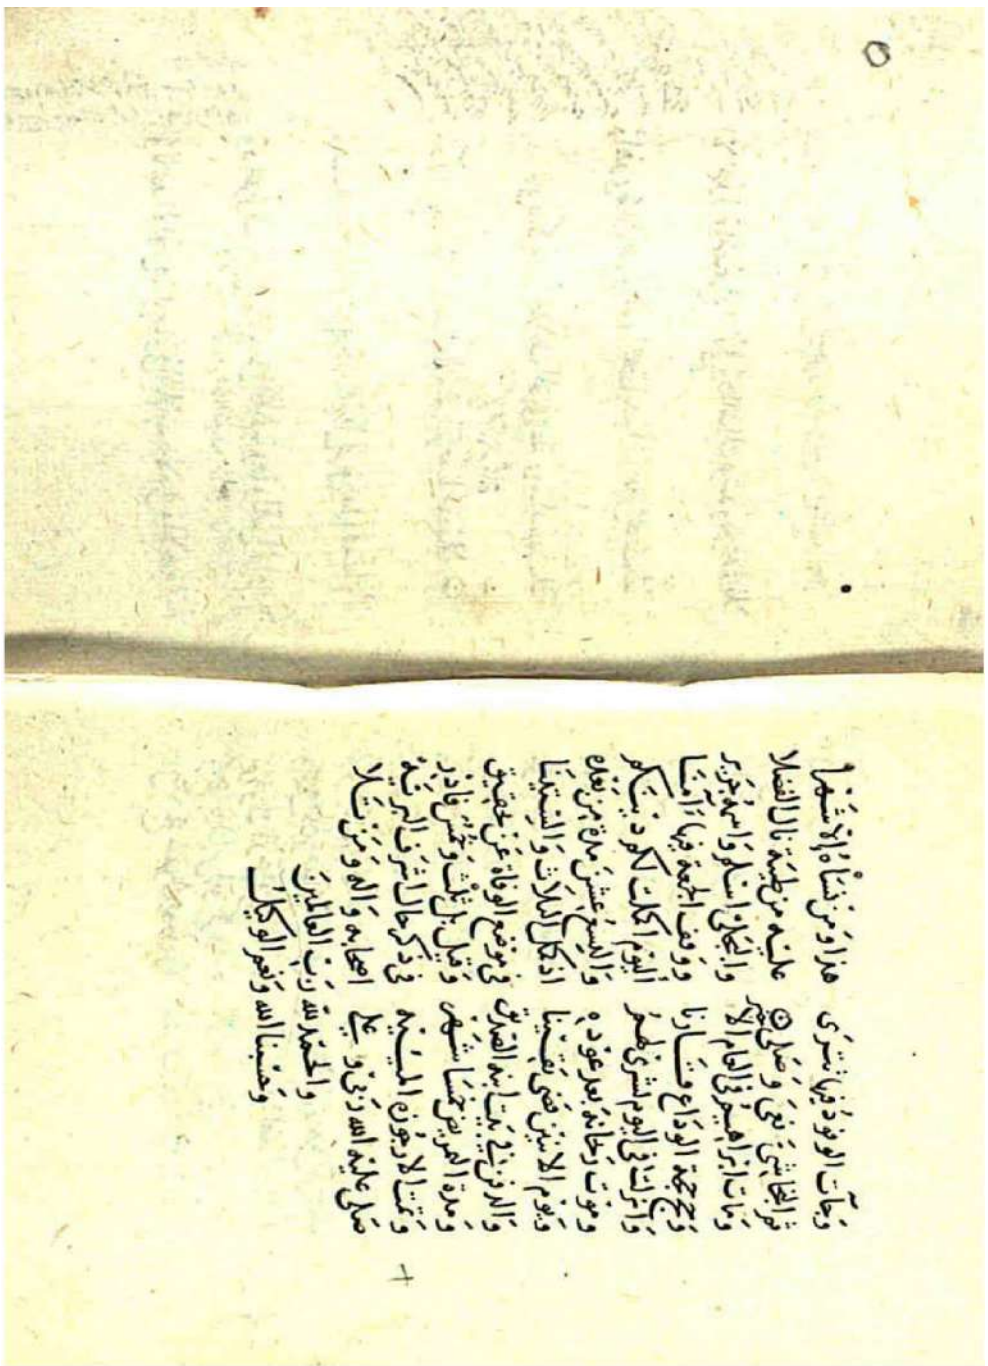 وَجآت الوفودُ فيها تترَى هذا وَمن نسَاهُ الا شَهرا
ثم النجاشِيَّ نعَى وَصَلى عليه من طيبَة نال الفضلا
وَمات ابراهيمُ في العام الاخير والبجلي اسلم وَاسمهُ جرير
وَحج حجة الودَاع قارنا ووقف الجمعة فيها آمنا
وَانزلت في اليوم بشرى لهمُ اليوم اكملت لكم دينكم
وموت رَيحانة بعد عوده وَالتسع عشن مدة من بَعده
وَيوم الاثنين قضى يقينا اذ اكمل الثلاث وَالستينا
وَالدفن في بيت ابنة الصديق في موضع الوفاة عن تحقيق
وَمدة التمريض خمسا شهر وَقيل بل ثلث وخمس فادر
وَتمت الارجوزة الميئيه في ذكر حال اشرف البريه
صَلى عليه الله ربي وَعلى اصحابه واله وَمن تلا
والحمد لله رَب العالمين
وَحسْبنا الله وَنعم الوكيل